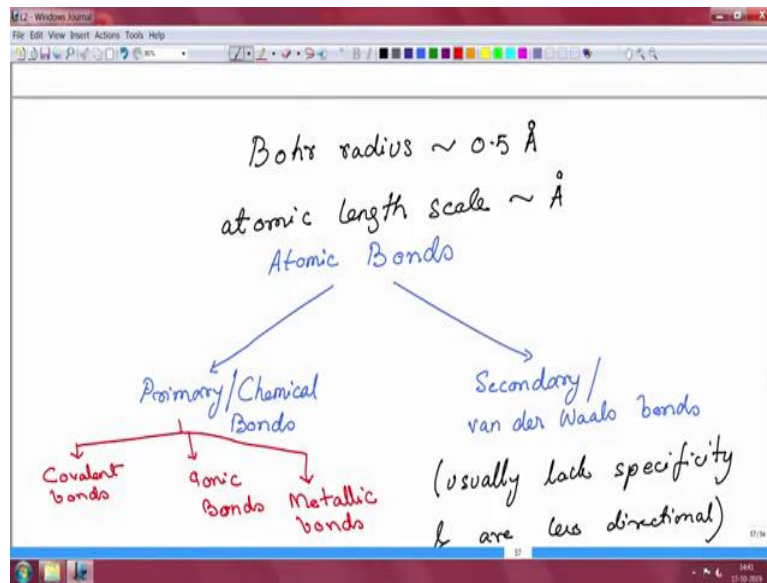 L2 - Windows Journal
File Edit View Insert Actions Tools Help
Bohr radius ~ 0.5 Å
atomic length scale ~ Å
Atomic Bonds
Primary/Chemical
Bonds
Secondary/
van der Waals bonds
Covalent
bonds
Ionic
Bonds
Metallic
bonds
(usually lack specificity
& are less directional)
37
14:41
17-10-2019